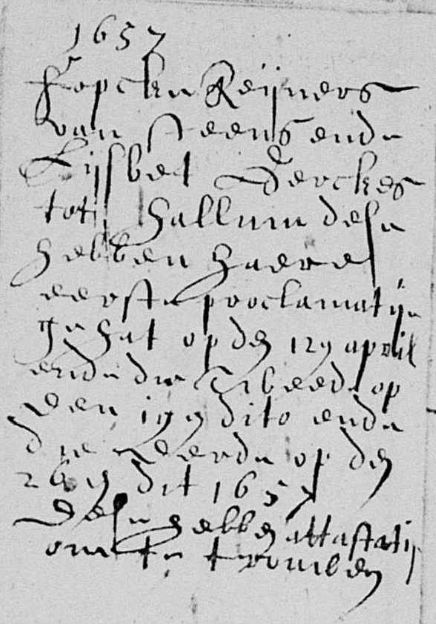 1657
Fopcke Reijners
van Steens ende
Lijsbet Derckes
tot Hallum dese
hebben haere
eerste proclamatije
gehat op den 12 april
ende die tweede op
den 19 dito ende
die deerde op den
26 dit 1657
dese hebben attastatij
om te trouwen